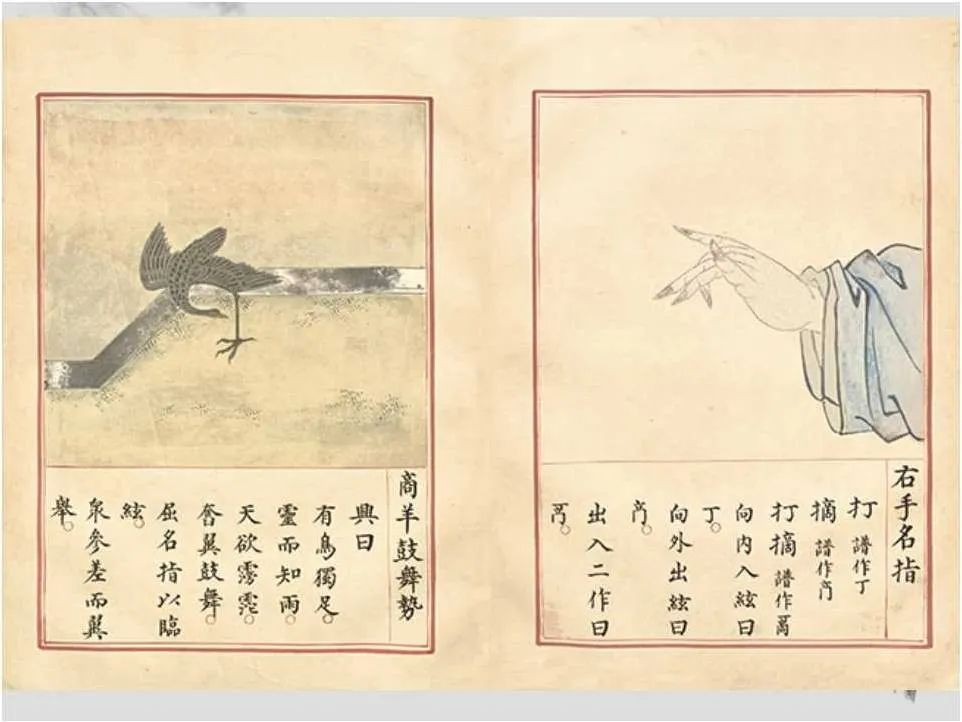 右手名指
打 譜作丁
摘 譜作
打摘 譜作
向内入絃曰
丁。
向外出絃曰
出入二作曰
商羊鼓舞勢
興曰
有鳥獨足。
靈而知雨。
天欲霶霈。
奮翼鼓舞。
屈名指以臨
絃。
衆參差而翼
舉。